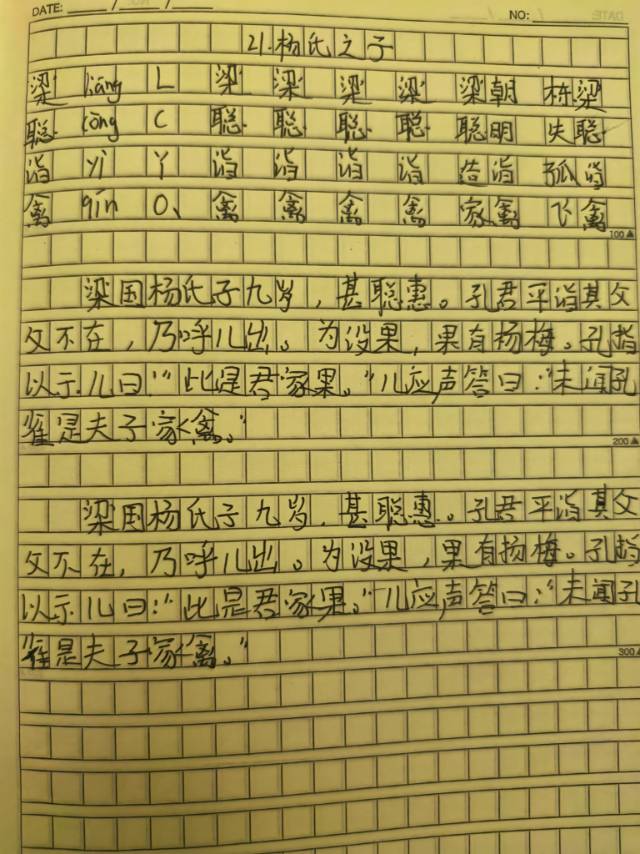 DATE: / /
NO:
21.杨氏之子
梁 liáng L 梁 梁 梁 梁 梁朝 栋梁
聪 cōng C 聪 聪 聪 聪 聪明 失聪
诣 yì Y 诣 诣 诣 诣 造诣 孤诣
禽 qín Q 禽 禽 禽 禽 家禽 飞禽
100
梁国杨氏子九岁，甚聪惠。孔君平诣其父
父不在，乃呼儿出。为设果，果有杨梅。孔指
以示儿曰：“此是君家果。”儿应声答曰：“未闻孔
雀是夫子家禽。”
200
梁国杨氏子九岁，甚聪惠。孔君平诣其父
父不在，乃呼儿出。为设果，果有杨梅。孔指
以示儿曰：“此是君家果。”儿应声答曰：“未闻孔
雀是夫子家禽。”
300